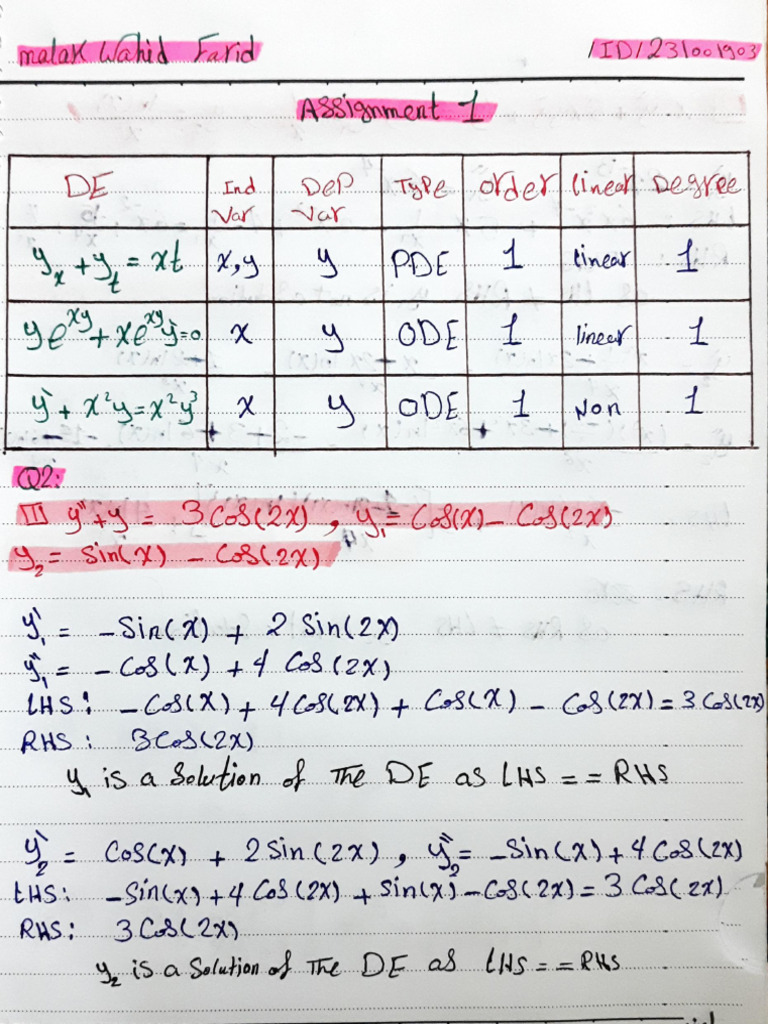 malak Wahid Farid /ID/231001903
Assignment 1
DE Ind Var Dep Var Type order linear Degree
yₓ + yₜ = xt x,y y PDE 1 linear 1
ye^xy + xe^xy y` = 0 x y ODE 1 linear 1
y` + x²y = x²y³ x y ODE 1 Non 1
Q2:
[1] y" + y = 3 Cos(2x) , y₁ = Cos(x) - Cos(2x)
y₂ = Sin(x) - Cos(2x)
y₁` = -Sin(x) + 2 Sin(2x)
y₁`` = -Cos(x) + 4 Cos(2x)
LHS: -Cos(x) + 4Cos(2x) + Cos(x) - Cos(2x) = 3 Cos(2x)
RHS: 3Cos(2x)
y₁ is a Solution of The DE as LHS == RHS
y₂` = Cos(x) + 2Sin(2x) , y₂`` = -Sin(x) + 4Cos(2x)
LHS: -Sin(x) + 4 Cos(2x) + Sin(x) - Cos(2x) = 3 Cos(2x)
RHS: 3 Cos(2x)
y₂ is a Solution of The DE as LHS == RHS